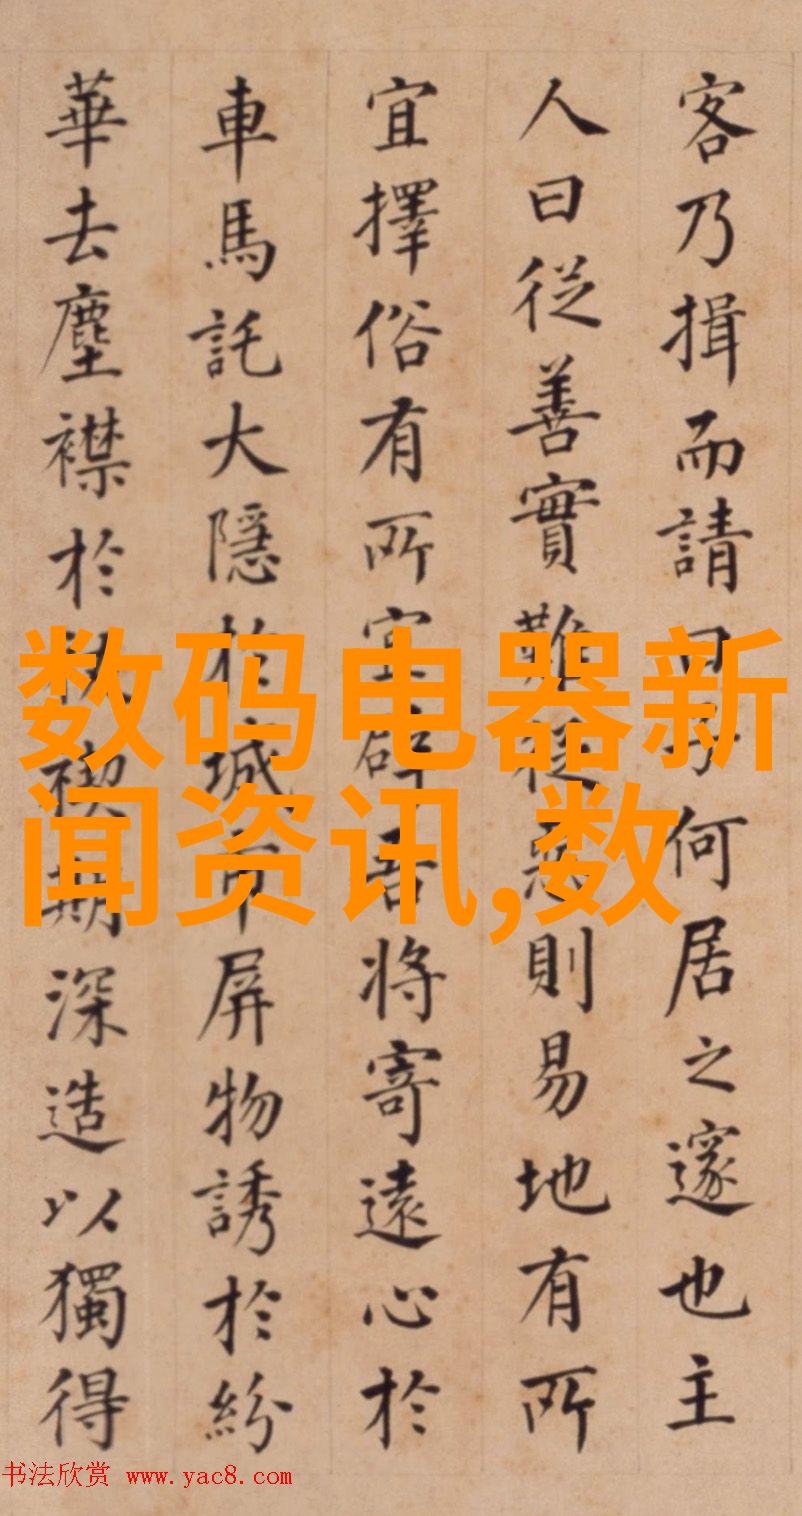 客乃揖而請曰子何居之邃也主
人曰從善實難從惡則易地有所
宜擇俗有所宜辟吾將寄遠心於
車馬託大隱於城市屏物誘於紛
華去塵襟於禊期深造以獨得
数码电器新
闻资讯,数
书法欣赏 www.yac8.com